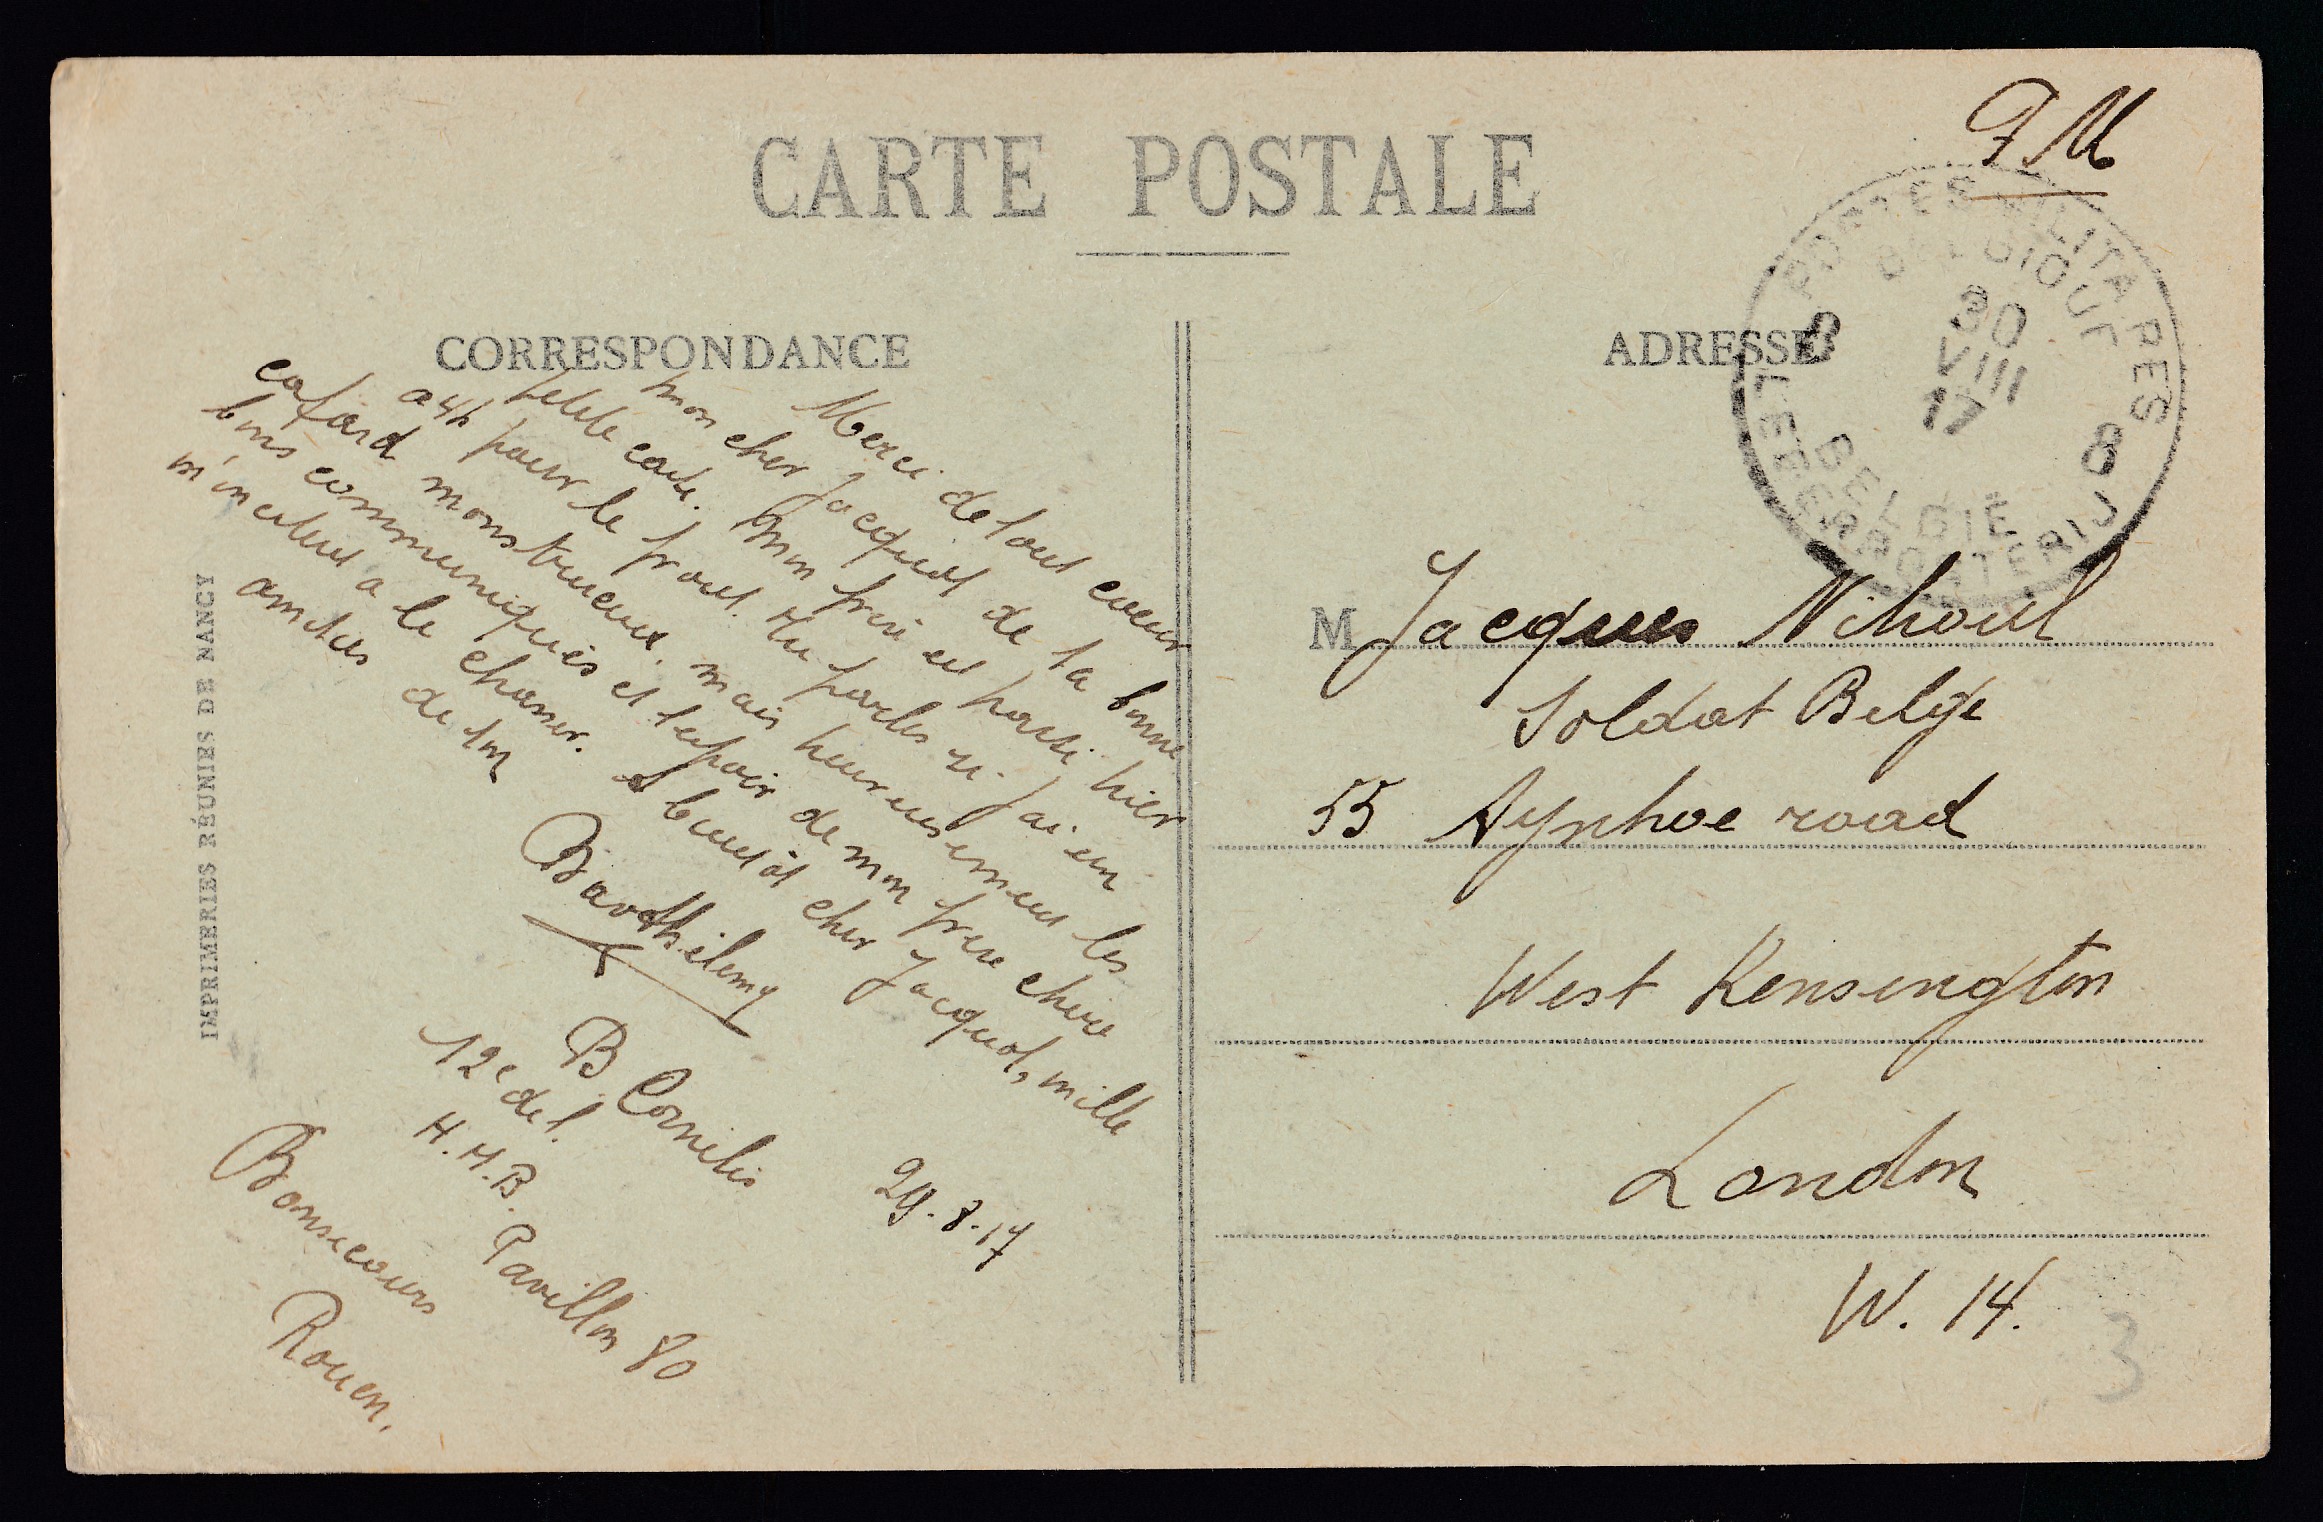 CARTE POSTALE
F M
CORRESPONDANCE
ADRESSE
POSTES MILITAIRES
BELGIQUE
8
30
VIII
17
8
BELGIË
LEGERPOSTERIJ
Merci de tout coeur
mon cher Jacquot de la bonne
petite carte. Mon frère est parti hier
a 4h pour le front. Tu parles si j'ai eu
cafard monstrueux, mais heureusement les
bons communiqués et l'espoir de mon frère chéri
m'incitent a le chasser. A bientôt cher Jacquot, mille
amitiés de ton
Barthélemy
B Cornelis
12e del.
H.M.B. Pavillon 80
Bonsecours
Rouen.
29.8.17
M Jacques Nihoul
Soldat Belge
55 Aynhoe road
West Kensington
London
W. 14.
3
IMPRIMERIES RÉUNIES DE NANCY